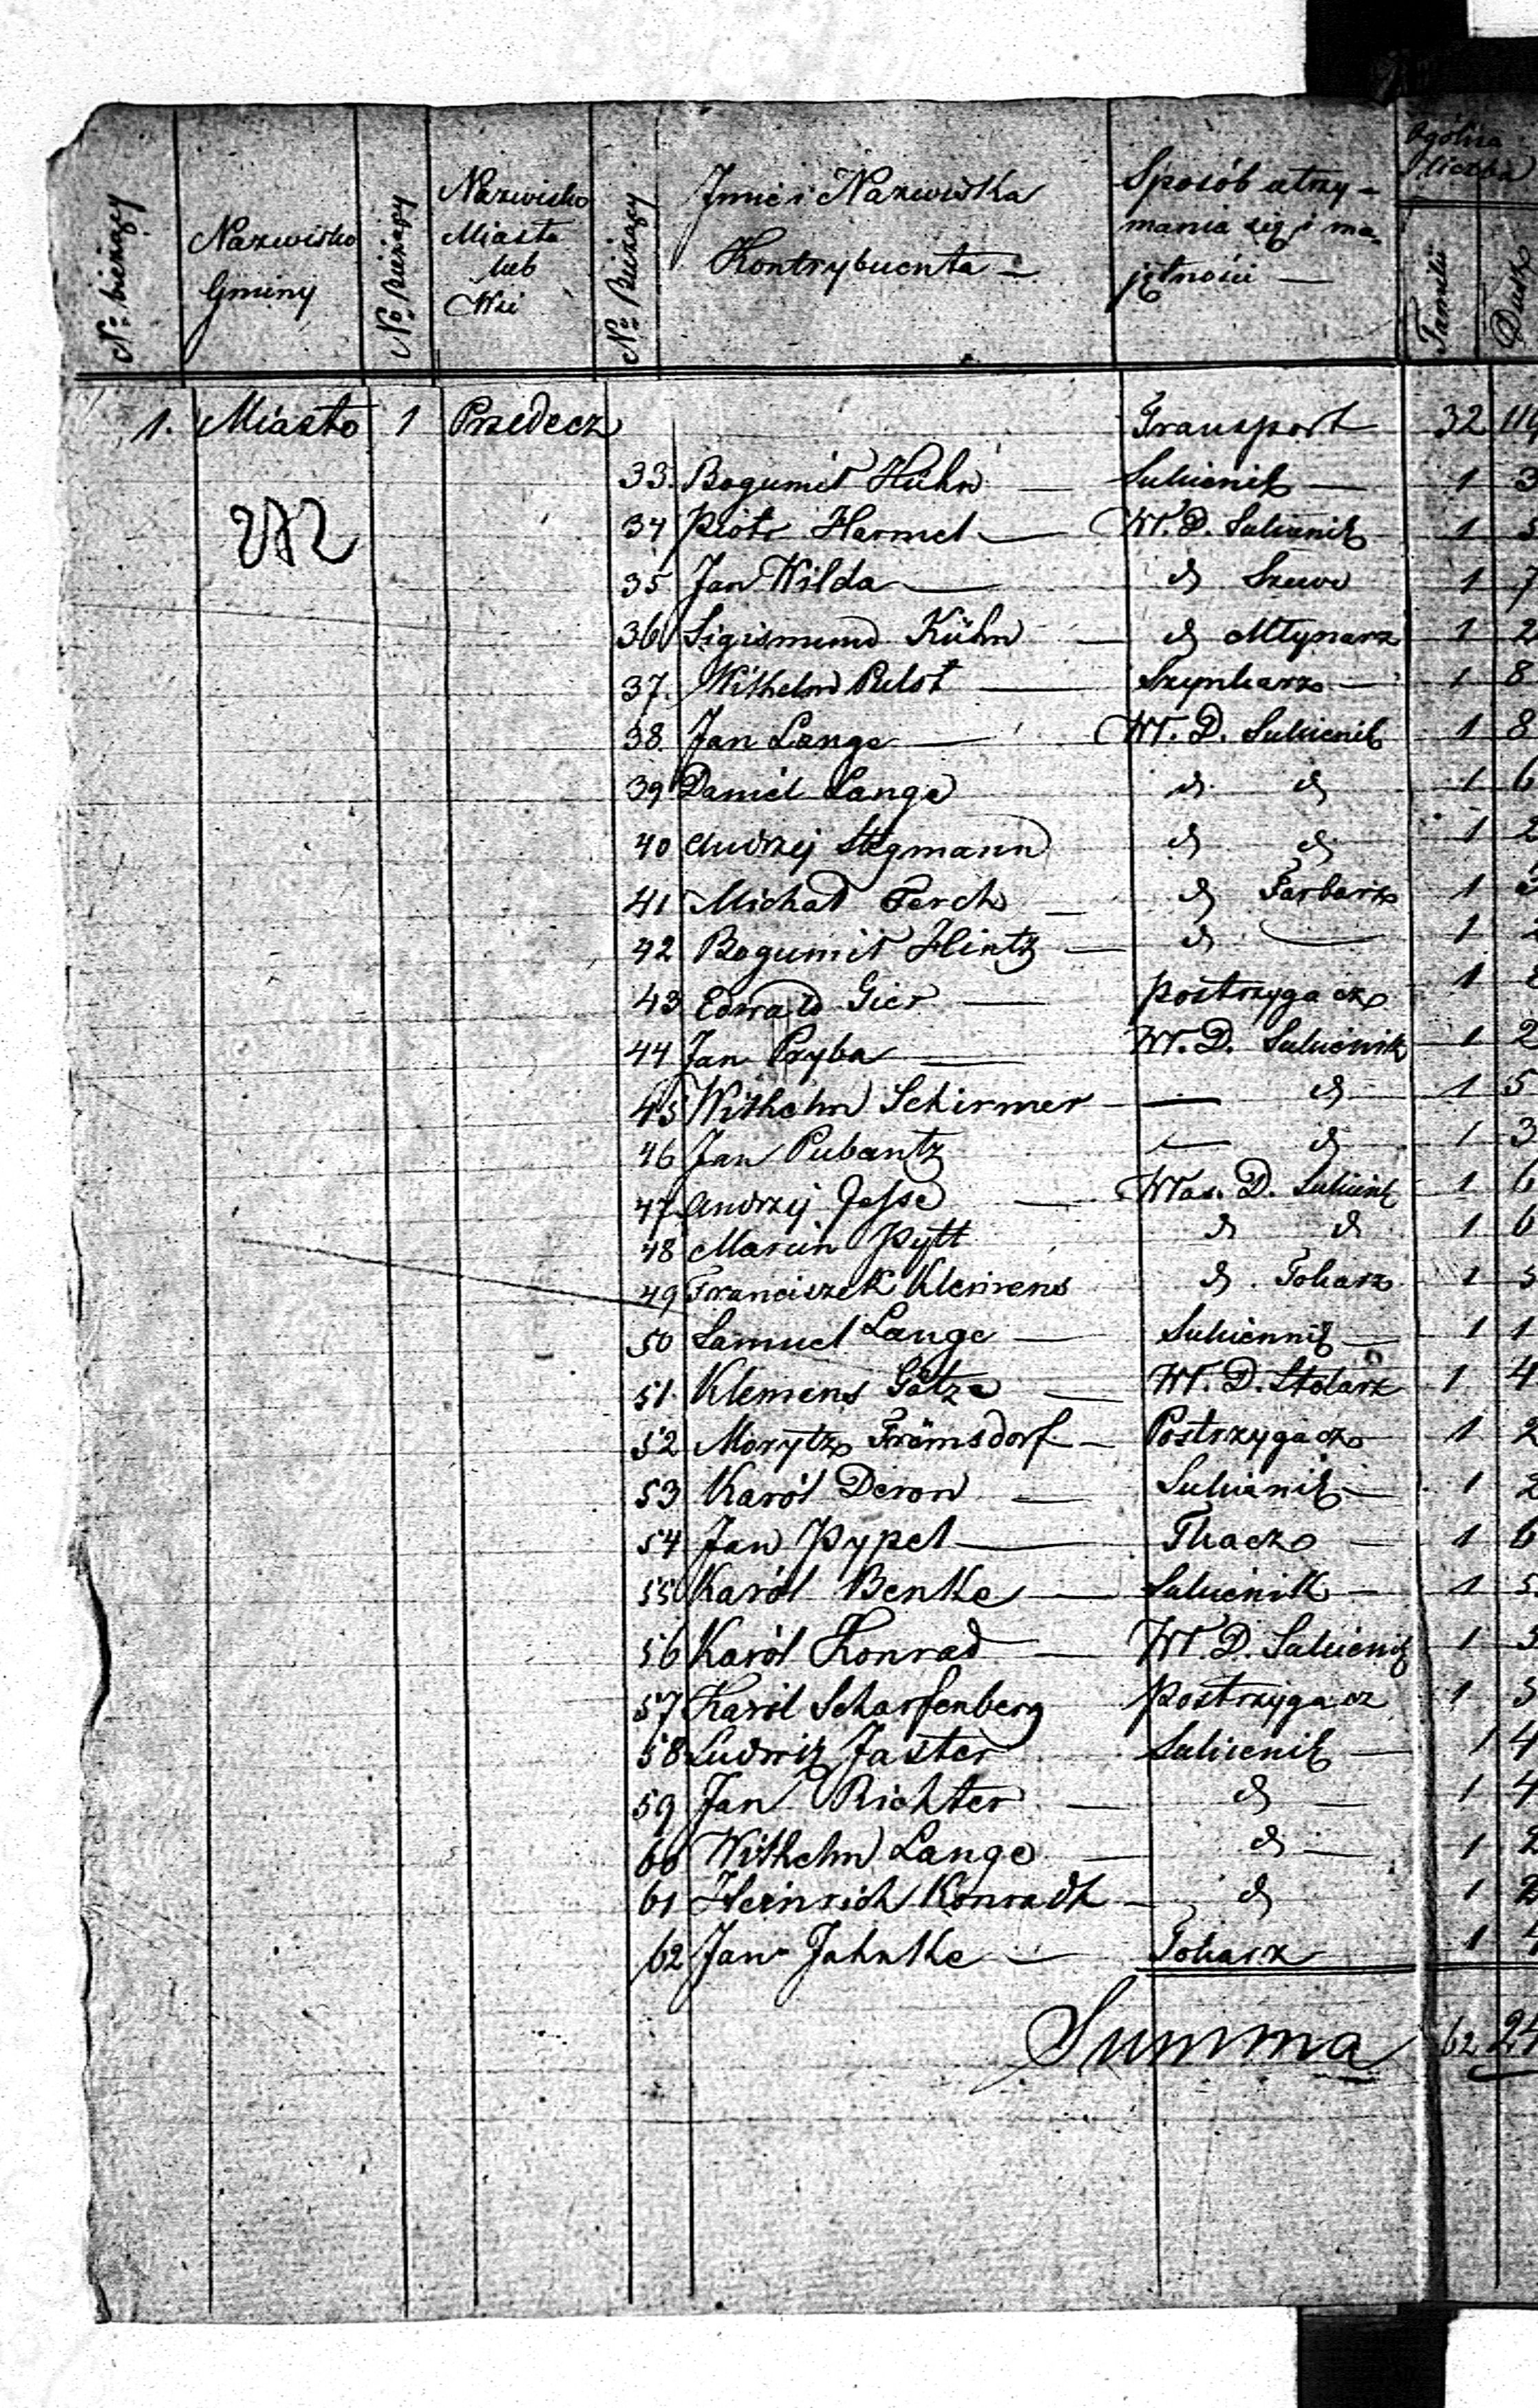 No bieżący
Nazwisko Gminy
No Bieżący
Nazwisko Miasta lub Wsi
No Bieżący
Jmie i Nazwiska Kontrybuenta
Sposób utrzymania się i majętności
Ogólna liczba
Familii
Dusz
1. Miasto 1 Przedecz Transport 32
33. Bogumił Huhn — Sukienik — 1 3
34 Piotr Harmel — Wł. D. Sukienik 1
35 Jan Wilda — d Szewc 1 7
36 Sigismund Kühn — d Młynarz 1 2
37. Wilhelm Pulst — Szynkarz — 1 8
38. Jan Lange — Wł. D. Sukienik 1 8
39 Daniel Lange d d 1 6
40 Andrzej Stegmann d d 1 2
41 Michał Ferch — d Farbarz 1
42 Bogumił Hintz — d — 1
43 Edwald Gier — Postrzygacz 1
44 Jan Pzyba — Wł. D. Sukienik 1 2
45 Wilhelm Schirmer — d 1 5
46 Jan Pubantz — d 1 3
47 Andrzej Jesse — Właś. D. Sukienik 1 6
48 Marcin Pytt d d 1 6
49 Franciszek Klemens d Tokarz 1
50 Samuel Lange — Sukiennik — 1 1
51. Klemens Götze — Wł. D. Stolarz 1 4
52 Morytz Frömsdorf — Postrzygacz 1 2
53 Karól Deron — Sukienik — 1 2
54 Jan Pypel — Tkacz — 1 6
55 Karól Benke — Sukienik — 1 5
56 Karól Konrad — Wł. D. Sukienik 1 3
57 Karól Scharfenberg Postrzygacz 1 3
58 Ludwik Jaster Sukienik — 1 4
59 Jan Richter — d — 1 4
60 Wilhelm Lange — d — 1 2
61 Heinrich Konradt — d 1 2
62 Jan Jahnke — Tokarz 1 4
Summa 62